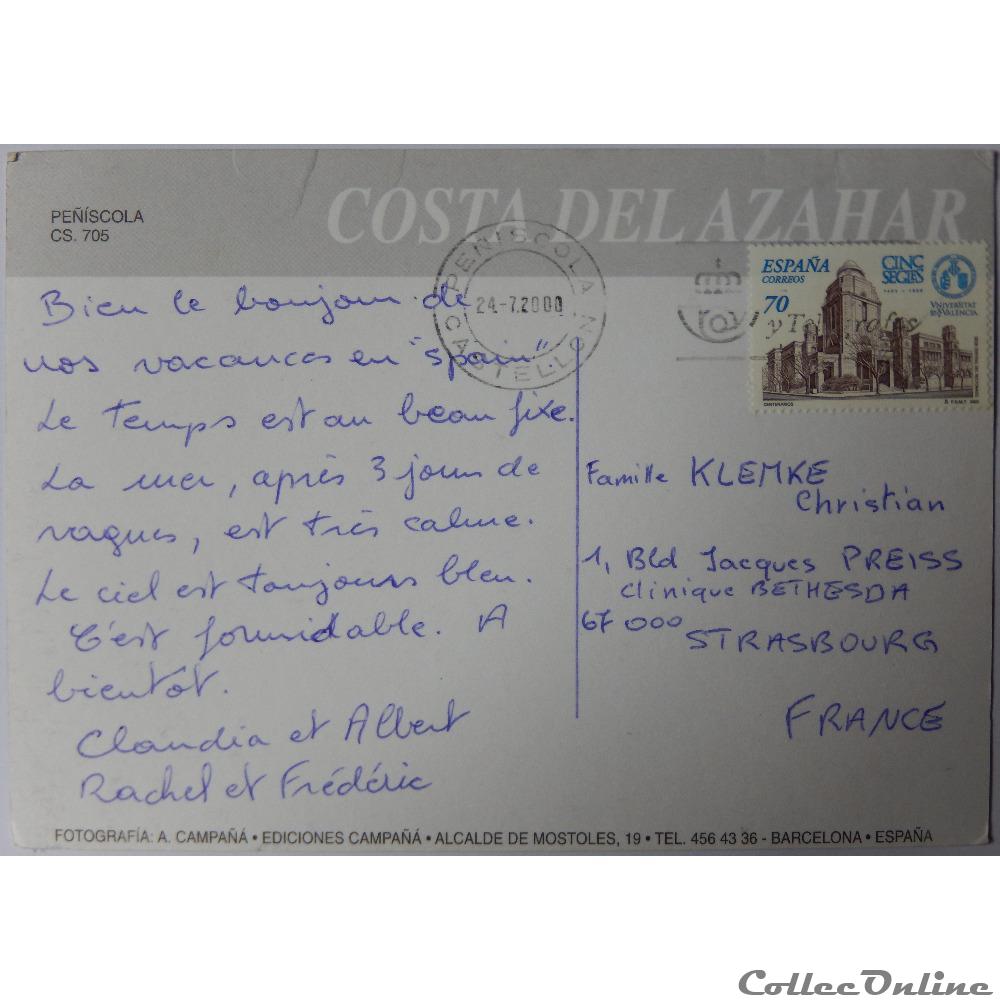 COSTA DEL AZAHAR
PEÑÍSCOLA
CS. 705
PEÑISCOLA
24-7.2000
CASTELLON
y Telégrafos
ESPAÑA
CORREOS
70
CINC
SEGLES
UNIVERSITAT
DE VALÈNCIA
CENTENARIOS
Bien le bonjour de
nos vacances en "spain"
Le temps est au beau fixe.
La mer, après 3 jours de
vagues, est très calme.
Le ciel est toujours bleu.
C'est formidable. A
bientôt.
Claudia et Albert
Rachel et Frédéric
Famille KLEMKE
Christian
1, Bld Jacques PREISS
Clinique BETHESDA
67 000
STRASBOURG
FRANCE
FOTOGRAFÍA: A. CAMPAÑÁ • EDICIONES CAMPAÑÁ • ALCALDE DE MOSTOLES, 19 • TEL. 456 43 36 - BARCELONA • ESPAÑA
CollecOnline